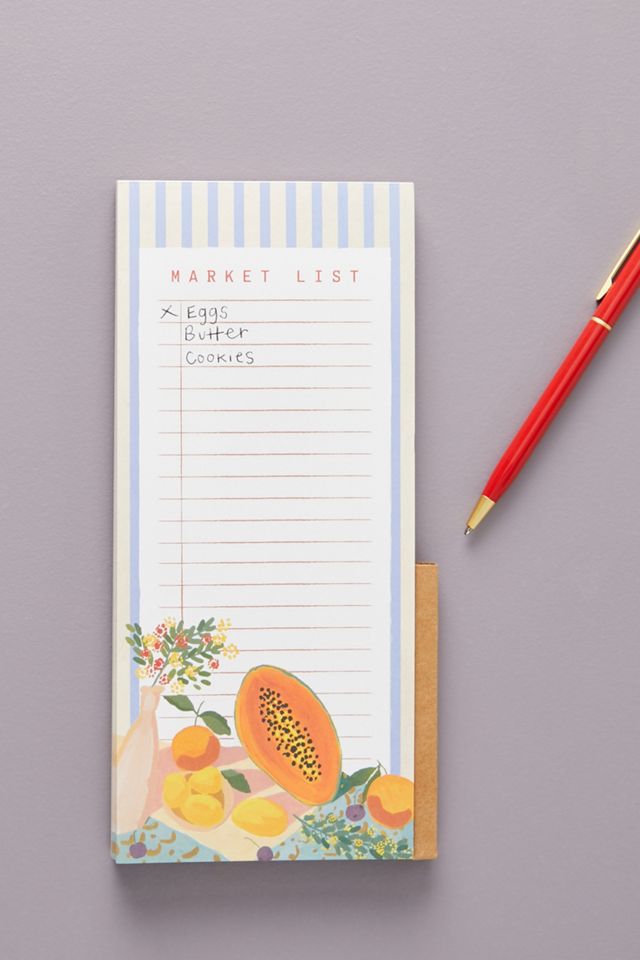 MARKET LIST
X Eggs
Butter
Cookies